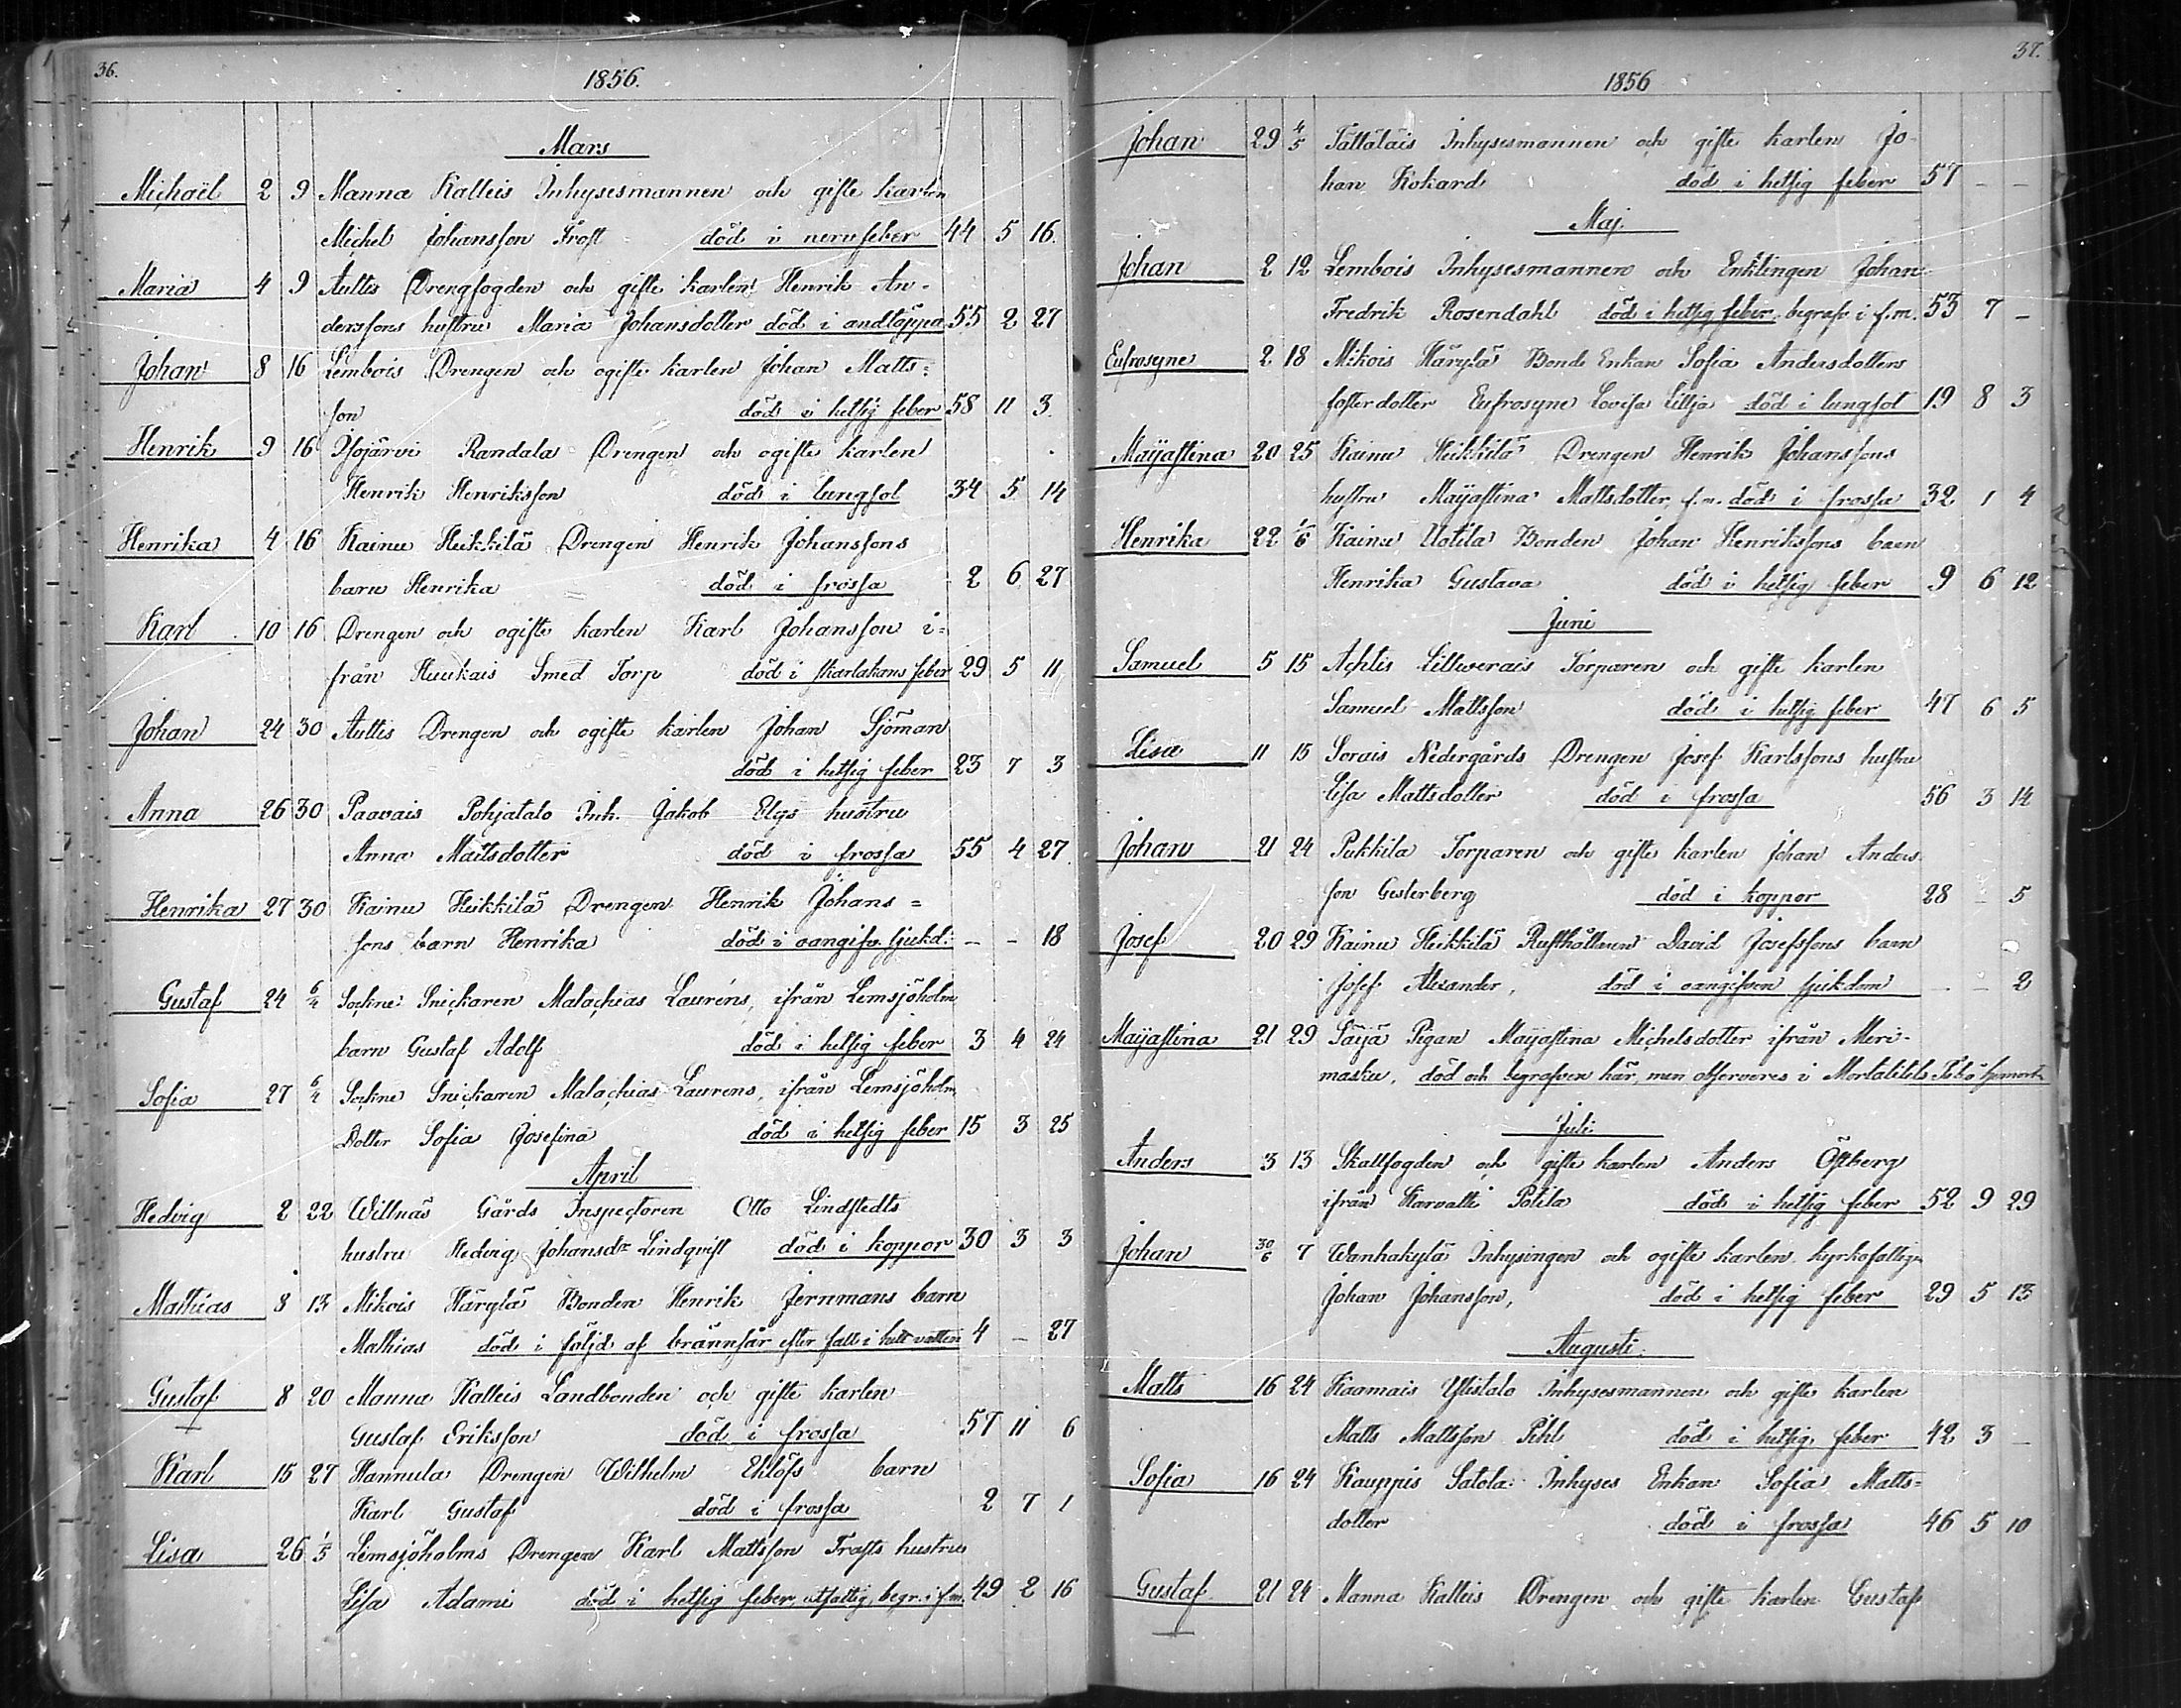 36.
1856.
Mars
Michaël 2 9 Manna Kalleis Inhysesmannen och gifte karlen
Michel Johansson Frost död i nervfeber 44 5 16.
Maria 4 9 Aultis Drengfogden och gifte karlen Henrik An-
derssons hustru Maria Johansdotter död i andtäppa 55 2 27
Johan 8 16 Lembois Drengen och ogifte karlen Johan Matts=
son död i hetsig feber 58 11 3.
Henrik 9 16 Isojärvi Randala Drengen och ogifte karlen
Henrik Henriksson död i lungsot 34 5 14
Henrika 4 16 Kainu Heikkilä Drengen Henrik Johanssons
barn Henrika död i frossa 2 6 27
Karl 10 16 Drengen och ogifte karlen Karl Johansson i=
från Huukais Smed Torp död i skarlakans feber 29 5 11
Johan 24 30 Aultis Drengen och ogifte karlen Johan Sjöman
död i hetsig feber 23 7 3
Anna 26 30 Paavais Pohjatalo Inh. Jakob Elgs hustru
Anna Mattsdotter död i frossa 55 4 27.
Henrika 27 30 Kainu Heikkilä Drengen Henrik Johans=
sons barn Henrika död i oangifv. sjukd: - - 18
Gustaf 24 6/4 Sockne Snickaren Malachias Lauréns, ifrån Lemsjöholm,
barn Gustaf Adolf död i hetsig feber 3 4 24
Sofia 27 6/4 Sockne Snickaren Malachias Laurens, ifrån Lemsjöholm,
Dotter Sofia Josefina död i hetsig feber 15 3 25
April
Hedvig 2 22 Willnäs Gårds Inspectoren Otto Lindstedts
hustru Hedvig Johansdr Lindqvist död i koppor 30 3 3
Mathias 8 13 Mikois Häryla Bonden Henrik Jernmans barn
Mathias död i följd af brännsår efter fall i hett vatten 4 - 27
Gustaf 8 20 Manna Kalleis Landbonden och gifte karlen
Gustaf Eriksson död i frossa 57 11 6
Karl 15 27 Hannula Drengen Wilhelm Eklöfs barn
Karl Gustaf död i frossa 2 7 1
Lisa 26 1/5 Lemsjöholms Drengen Karl Mattsson Trafts hustru
Lisa Adami död i hetsig feber, utfattig, begr. i f.m. 49 2 16
37.
1856
Johan 29 4/5 Tättäläis Inhysesmannen och gifte karlen Jo-
han Kokard död i hetsig feber 57 - -
Maj.
Johan 2 12 Lembois Inhysesmannen och Enklingen Johan
Fredrik Rosendahl död i hetsig feber, begrafv i f.m. 53 7 -
Eufrosyne 2 18 Mikois Häryla Bonde Enkan Sofia Andersdotters
fosterdotter Eufrosyne Lovisa Lillja död i lungsot 19 8 3
Maijastina 20 25 Kainu Heikkilä Drengen Henrik Johanssons
hustru Maijastina Mattsdotter, f.m. död i frossa 32 1 4
Henrika 22 1/6 Kainu Uotila Bonden Johan Henrikssons barn
Henrika Gustava död i hetsig feber 9 6 12
Juni
Samuel 5 15 Achtis Torparen och gifte karlen
Samuel Mattsson död i hetsig feber 47 6 5
Lisa 11 15 Sorais Nedergårds Drengen Josef Karlssons hustru
Lisa Mattsdotter död i frossa 56 3 14
Johan 21 24 Pukkila Torparen och gifte karlen Johan Anders-
son Gesterberg död i koppor 28 - 5
Josef 20 29 Kainu Heikkilä Rusthållaren David Josefssons barn
Josef Alexander, död i oangifven sjukdom - - 2
Maijastina 21 29 Säijä Pigan Maijastina Michelsdotter ifrån Meri-
masku, död och begrafven här, men observeres i Mortalitets Tab. å hemort.
Juli.
Anders 3 13 Skallfogden och gifte karlen Anders Östberg
ifrån Karvatti Potila död i hetsig feber 52 9 29
Johan 30/6 7 Wanhakylä Inhysingen och ogifte karlen, kyrkofattige
Johan Johansson, död i hetsig feber 29 5 13
Augusti.
Matts 16 24 Kaamais Ylistalo Inhysesmannen och gifte karlen
Matts Mattsson Pihl död i hetsig feber 42 3 -
Sofia 16 24 Kauppis Satola Inhyses Enkan Sofia Matts=
dotter död i frossa 46 5 10
Gustaf 21 24 Manna Kalleis Drengen och gifte karlen Gustaf